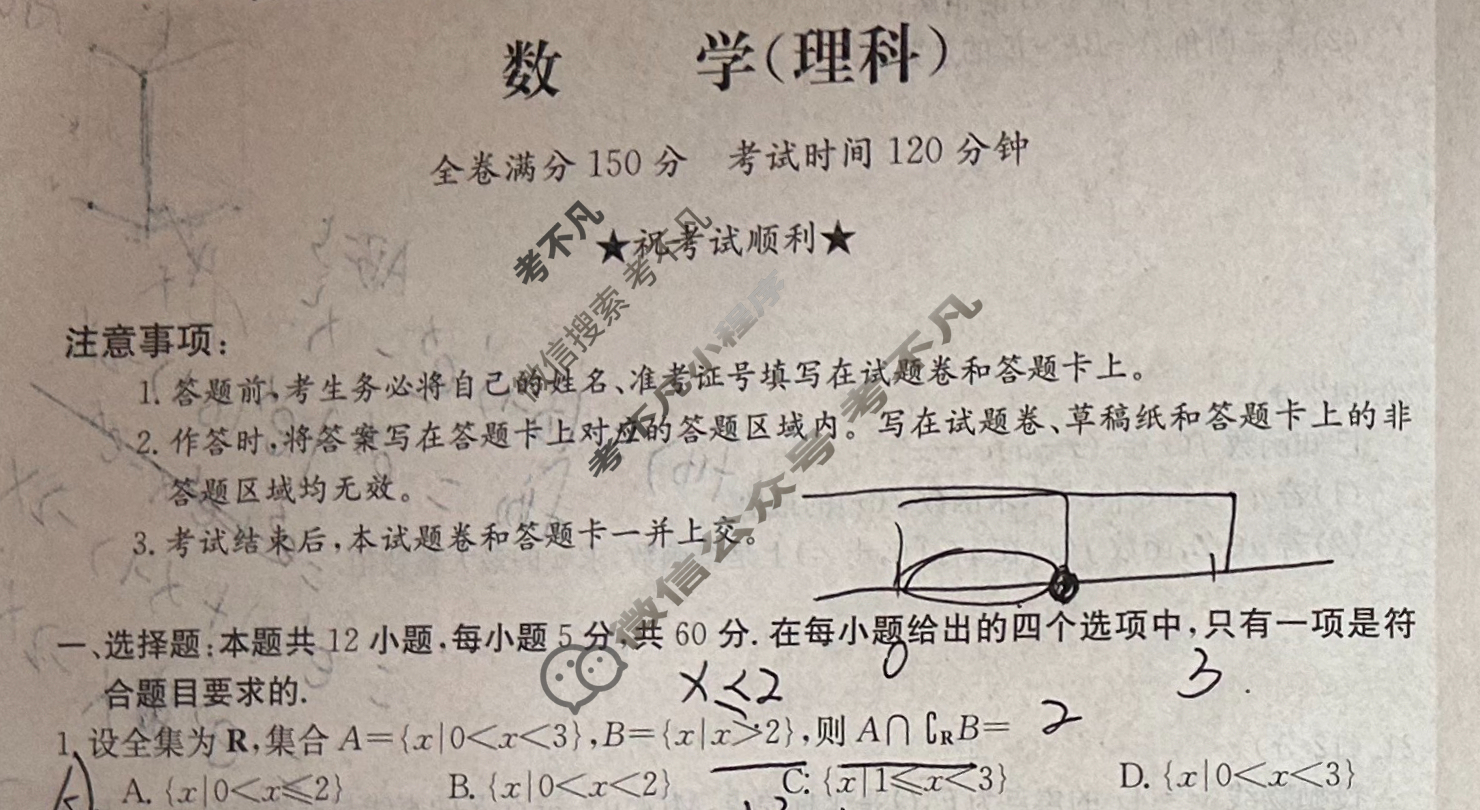 数 学(理科)
全卷满分 150 分 考试时间 120 分钟
★祝考试顺利★
注意事项:
1. 答题前,考生务必将自己的姓名、准考证号填写在试题卷和答题卡上。
2. 作答时,将答案写在答题卡上对应的答题区域内。写在试题卷、草稿纸和答题卡上的非
答题区域均无效。
3. 考试结束后,本试题卷和答题卡一并上交。
一、选择题:本题共 12 小题,每小题 5 分,共 60 分. 在每小题给出的四个选项中,只有一项是符
合题目要求的.
0
x≤2
3
1. 设全集为 R,集合 A={x|0<x<3},B={x|x>2},则 A∩∁RB=
2
A. {x|0<x≤2} B. {x|0<x<2} C. {x|1≤x<3} D. {x|0<x<3}
考不凡
微信搜索 考不凡
考不凡小程序
微信公众号 考不凡